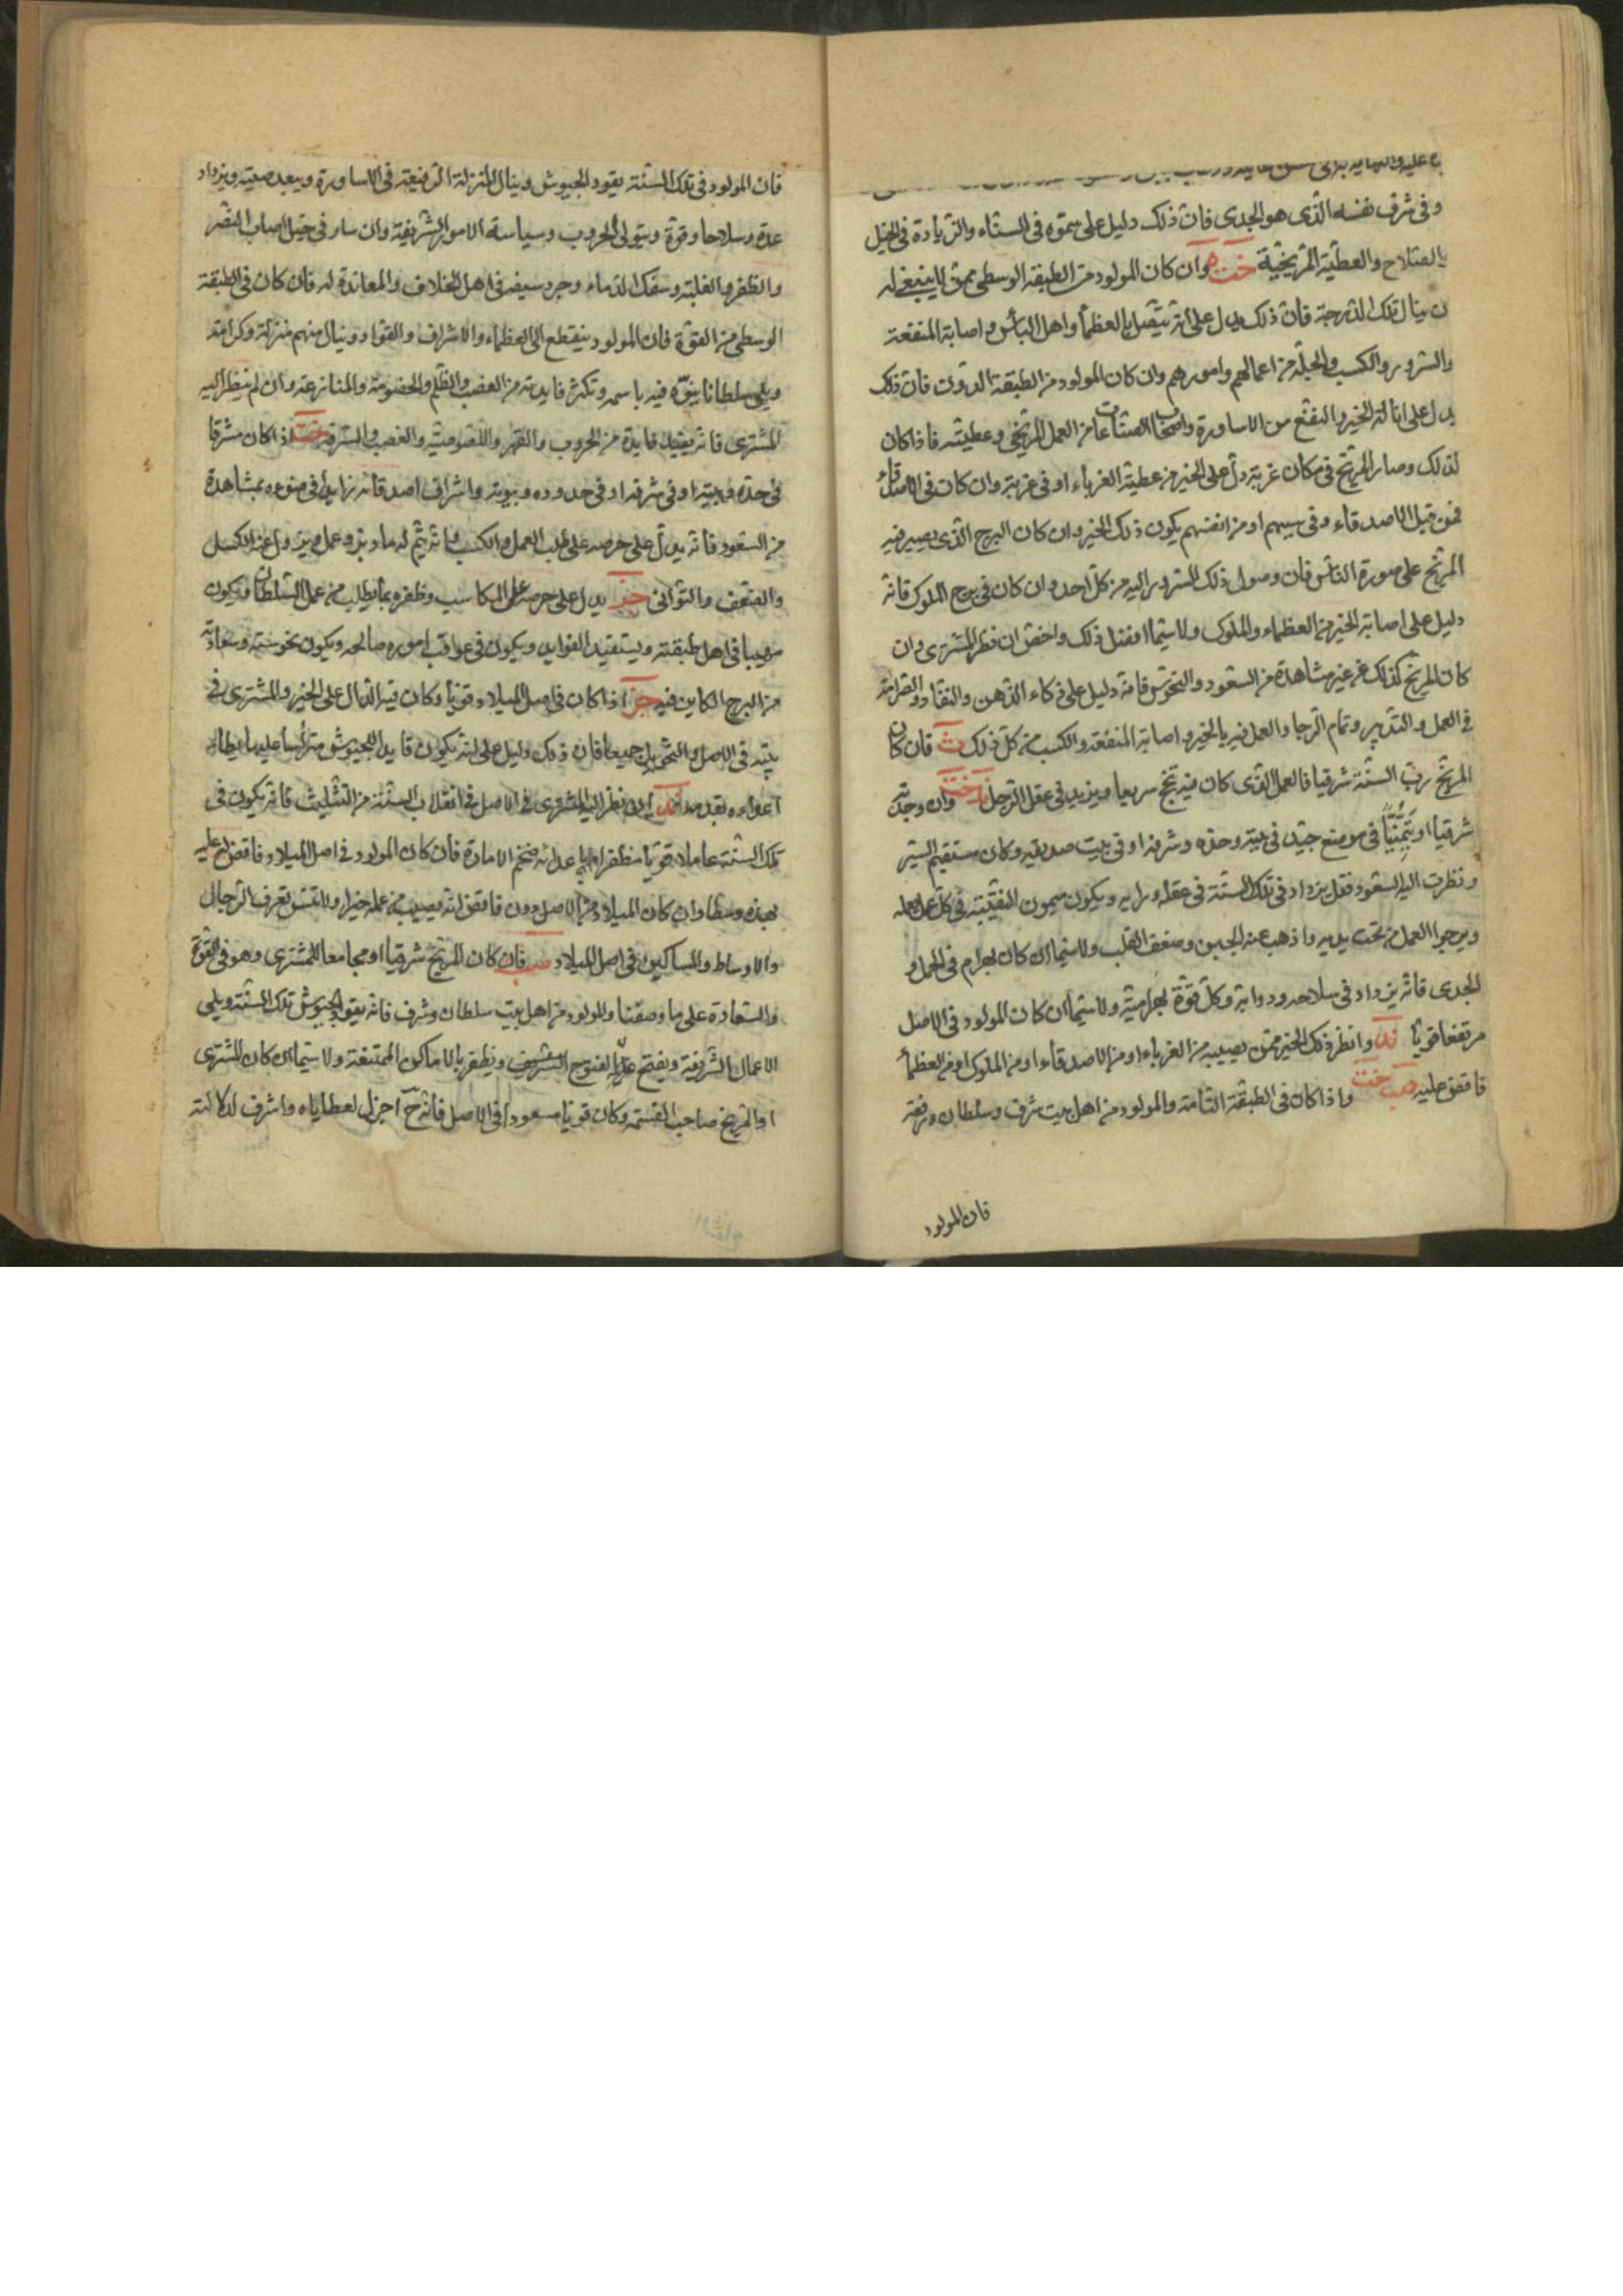 وفى شرف نفسه الذى هو الجدى فان ذلك دليل على سموّه فى السناء والزيادة فى الخيل
بالسلاح والعطية المريخية خت ه وان كان المولود من الطبقة الوسطى ممن لا ينبغى له
ن ينال تلك الدرجة فان ذلك يدل على انه يتصل بالعظماء واهل البأس واصابة المنفعة
والسرور والكسب والحيلة من اعمالهم وامورهم وان كان المولود من الطبقة الدون فان ذلك
يدل على انالته الخير والنفع من الاساورة واصحاب الصناعات من العمل المريخى وعطيته فاذا كان
لذلك وصار المريخ فى مكان غربة دل على الخير من عطية الغرباء او فى غربة وان كان فى الاصدقاء
فمن قبل الاصدقاء وفى سببهم او من انفسهم يكون ذلك الخير وان كان البرج الذى يصير فيه
المريخ على صورة الناس فان وصول ذلك السرور اليه من كل احد وان كان فى برج الملوك فانه
دليل على اصابة الخير من العظماء والملوك ولا سيما افضل ذلك واخص ان نظر المشترى وان
كان المريخ كذلك من غير مشاهدة من السعود والنحوس فانه دليل على ذكاء الذهن والنفاذ والصرامة
فى العمل والتدبير وتمام الرجا والعمل فيه بالخير واصابة المنفعة والكسب من كل ذلك ث فان كان
المريخ رب السنة شرقيا فالعمل الذى كان فيه ينجح سريعا ويزيد فى عقل الرجل ند خت وان وجدته
شرقيا او يتمنيّا فى موضع جيّد فى بيته وحدّه وشرفه او فى بيت صديقه وكان مستقيم السير
ونظرت اليه السعود فقل يزداد فى تلك السنة فى عقله ورايه ويكون ميمون النقيبة فى كل عمل يعمله
ويرجوا العمل من تحت يديه واذهب عنه الجبن وضعف القلب ولا سيما ان كان بهرام فى الحمل و
الجدى فانه يزداد فى سلاحه ودوابه وكل قوّة بهرامية ولا سيما ان كان المولود فى الاصل
مرتفعا قويا ند وانظر ذلك الخير ممن يصيبه من الغرباء او من الاصدقاء او من الملوك او من العظماء
فاقض عليه صب خت واذا كان فى الطبقة التامة والمولود من اهل بيت شرف وسلطان ورفعة
فان المولود
فان المولود فى تلك السنة يقود الجيوش وينال المنزلة الرفيعة فى الاساورة ويبعد صيته ويزداد
عدة وسلاحا وقوة ويتولى الحروب وسياسة الامور الشريفة وان سار فى خيل اصاب النصر
والظفر والغلبة وسفك الدماء وجرد سيفه فى اهل الخلاف والمعاندة له فان كان فى الطبقة
الوسطى من القوّة فان المولود ينقطع الى العظماء والاشراف والقواد وينال منهم منزلة وكرامة
ويلى سلطانا ينوّه فيه باسمه وتكثر فايدته من الغضب والظلم والخصومة والمنازعة وان لم ينظر اليه
المشترى فانه يفيد فايدة من الحروب والقهر واللصوصية والغصب والسرقة خت اذا كان مشرقا
فى حدّه وبيته او فى شرفه او فى حدوده وبيوته واشراف اصدقائه زايدا فى ضوءه بمشاهدة
من السعود فانه يدل على حرصه على طلب العمل والكسب وانه يتم له ما دبّر وعمل ويزول عنه الكسل
والضعف والتوانى خز يدل على حرصه على المكاسب وظفره بما يطلب من عمل السلطان ويكون
مهيبا فى اهل طبقته ويستفيد الفوايد ويكون فى عواقب اموره صالحه ويكون نحوسته وسعادته
من البرج الكاين فيه خز اذا كان فى اصل الميلاد قويا وكان فيه الدال على الخير والمشترى فى
بيته فى الاصل والتحويل جميعا فان ذلك دليل على انه يكون قايد الجيوش مترأسا عليها يطاء
اعداءه بقدميه ند اين نظر اليه المشترى فى الاصل فى انقلاب السنة من التثليث فانه يكون فى
تلك السنة عاملا قويا مظفرا باعدائه ضخم الامارة فان كان المولود فى اصل الميلاد فاقض عليه
بهذه وسطا وان كان الميلاد من الاصل دون فاقض انه يصيب من عمله خيرا ولا تنس تعرف الرجال
والاوساط والمساكين فى اصل الميلاد صب فان كان المريخ شرقيا او مجامعا للمشترى وهو فى القوة
والسعادة على ما وصفنا والمولود من اهل بيت سلطان وشرف فانه يقود الجيوش تلك السنة ويلى
الاعمال الشريفة ويفتح على يديه الفتوح الشريف ويظفر بالاماكن الممتنعة ولا سيما ان كان المشترى
او المريخ صاحب القسمة وكان قويا مسعودا فى الاصل فانه ح اجزل لعطاياه واشرف لدلالته